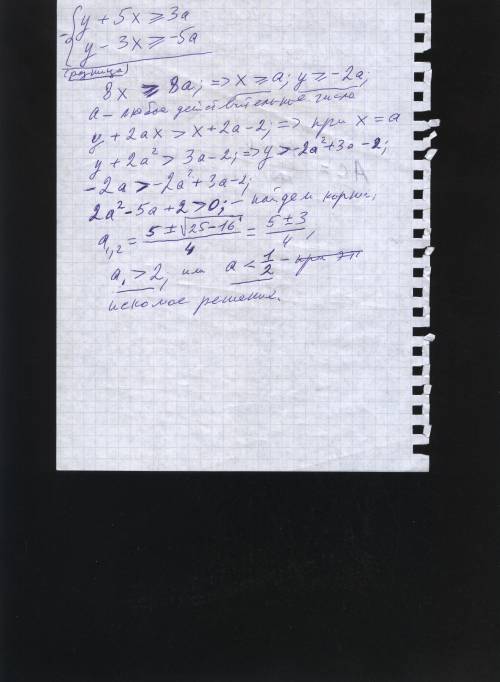 y + 5x ≥ 3a
- y - 3x ≥ -5a
(разница)
8x ≥ 8a; => x ≥ a; y ≥ -2a;
a - любое действительное число
y + 2ax > x + 2a - 2; => при x = a
y + 2a² > 3a - 2; => y > -2a² + 3a - 2;
-2a > -2a² + 3a - 2;
2a² - 5a + 2 > 0; - найдем корни;
a₁,₂ = (5 ± √(25 - 16))/4 = (5 ± 3)/4,
a₁ > 2, или a < 1/2 - при эт
искомое решение.